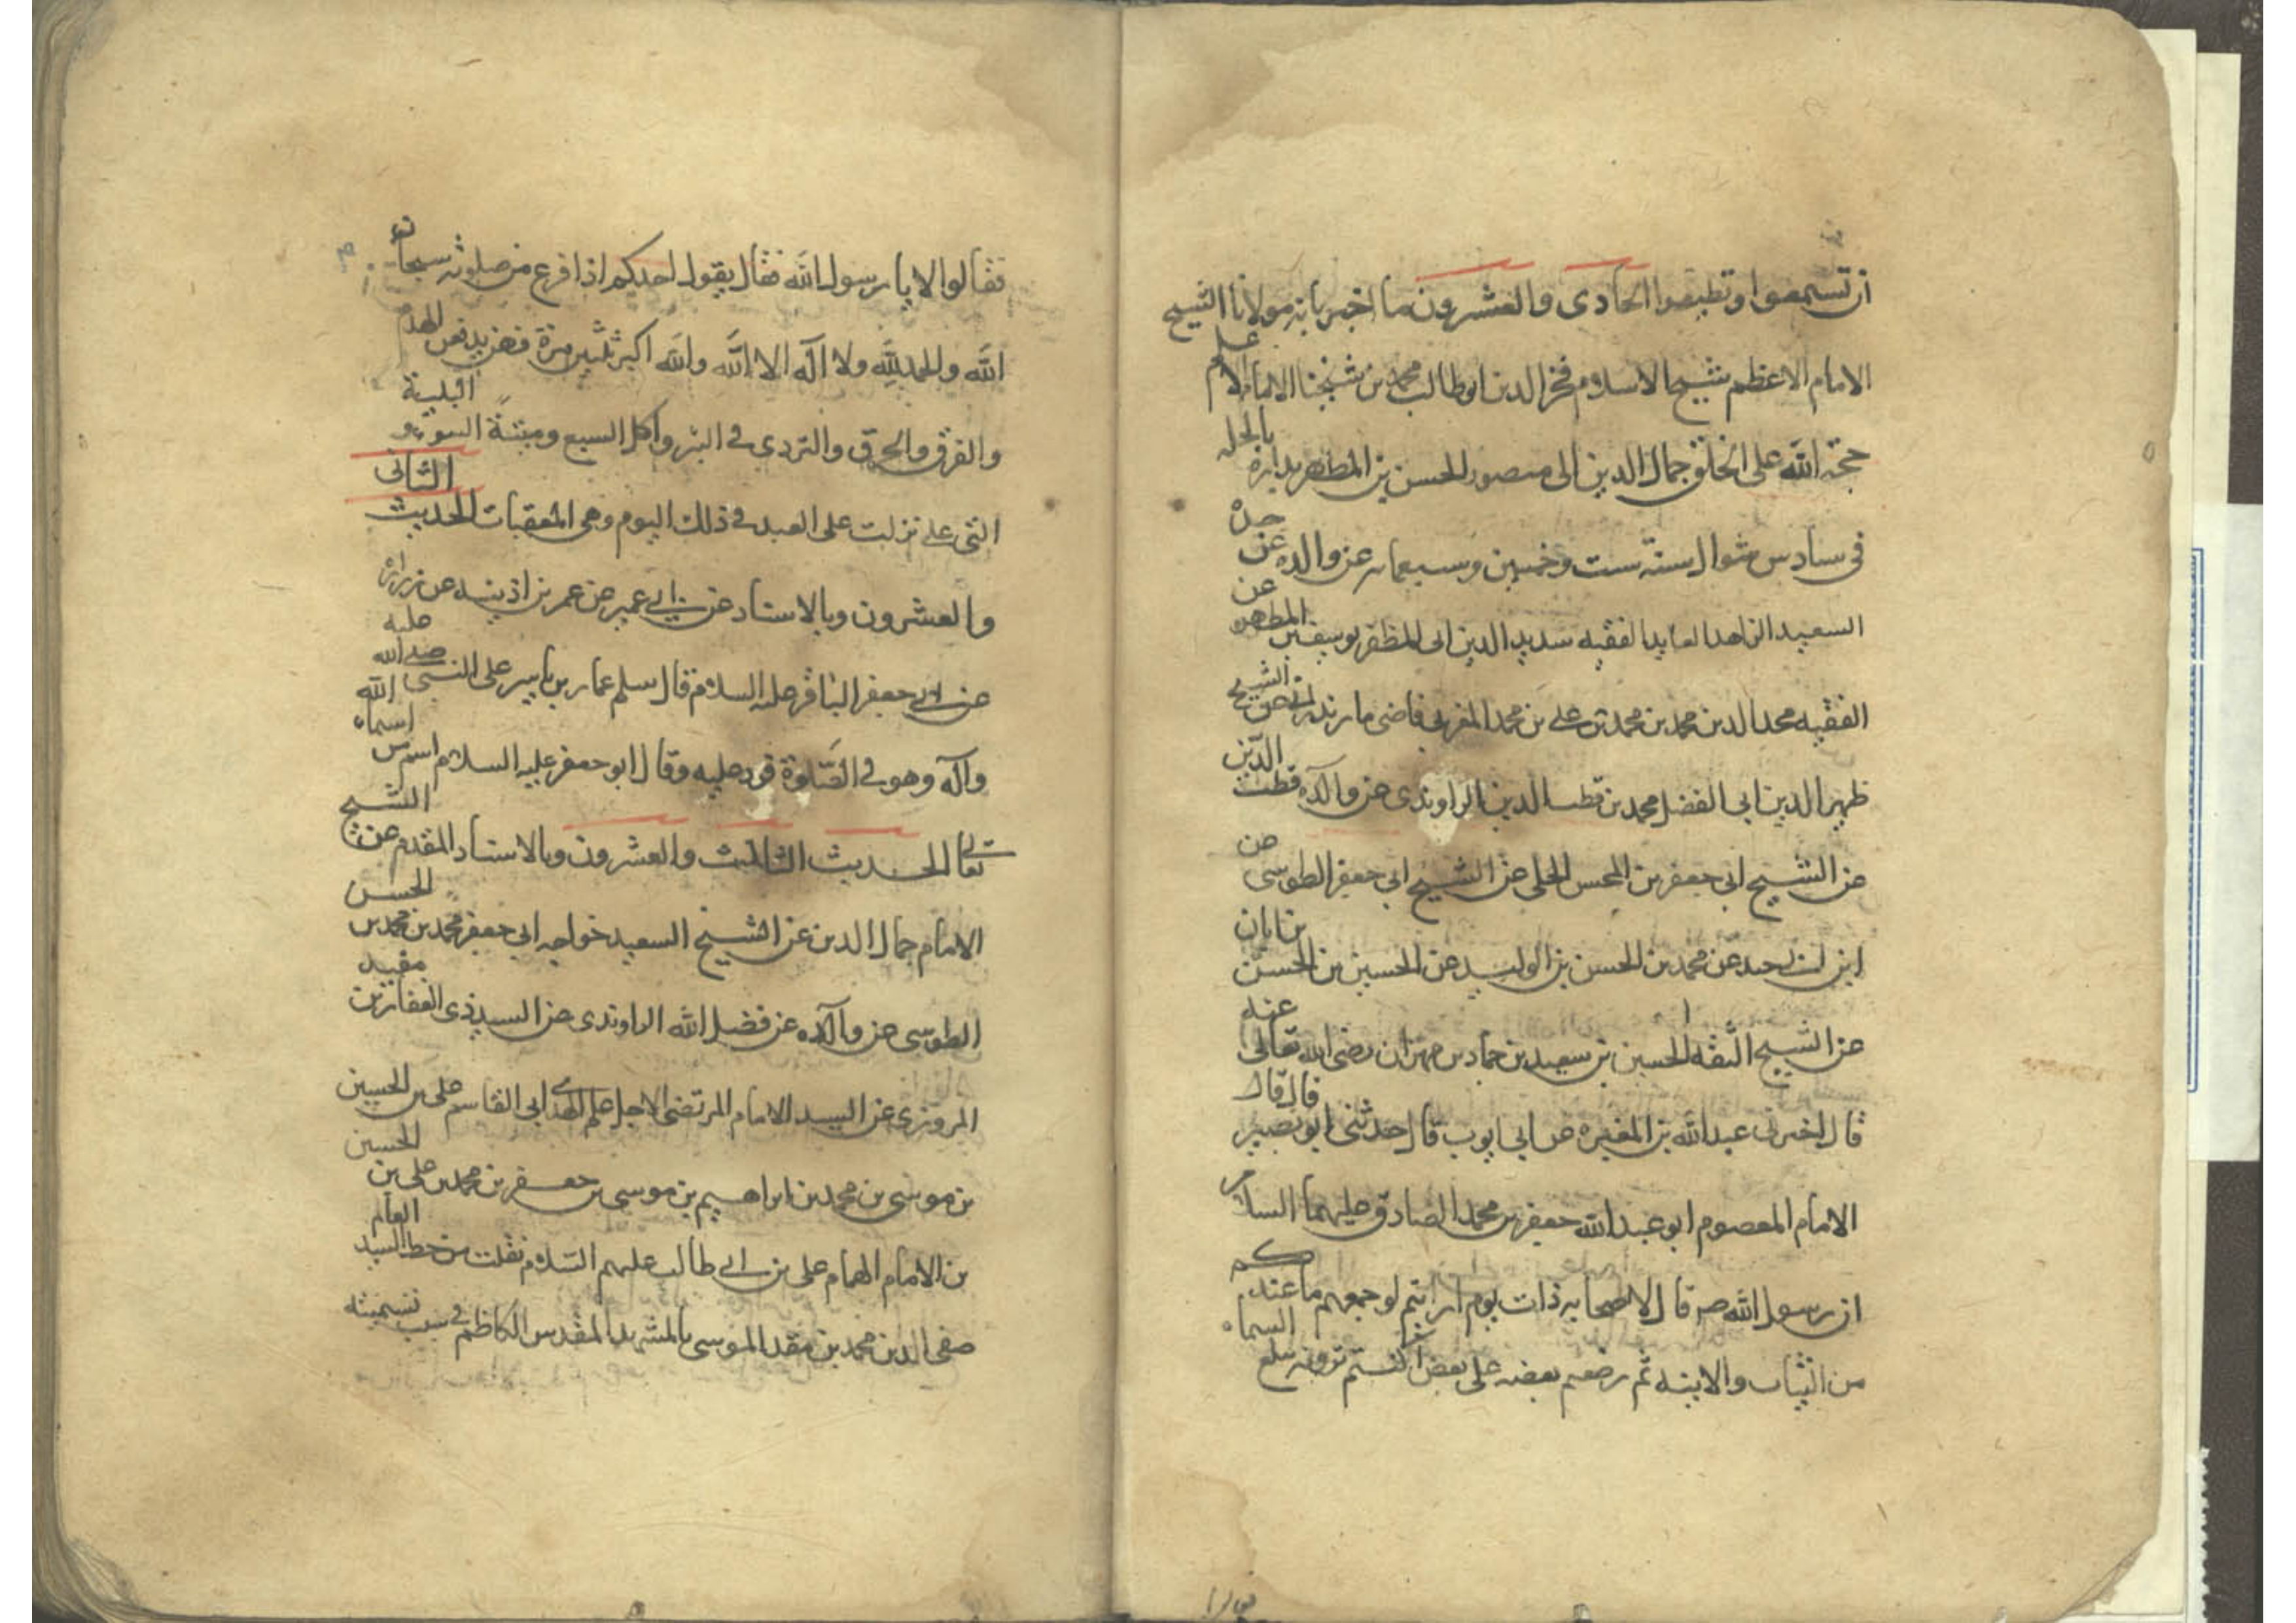 ان تستمعوا وتطيعوا الحادى والعشرون ما اخبرنا به مولانا الشيخ
الامام الاعظم شيخ الاسلام فخر الدين ابو طالب محمد بن شيخنا الامام الاعلم
حجة الله على الخلق جمال الدين ابى منصور الحسن بن المطهر بداره بالحله
فى سادس شوال سنة ست وخمسين وسبعمايه عن والده عن جده
السعيد الزاهد العابد الفقيه سديد الدين ابى المظفر يوسف بن المطهر عن
الفقيه مجد الدين محمد بن محمد بن على بن محمد المغربى قاضى مازندران عن الشيخ
ظهير الدين ابى الفضل محمد بن قطب الدين الراوندى عن والده قطب الدين
عن الشيخ ابى جعفر بن المحسن الحلى عن الشيخ ابى جعفر الطوسى عن
ابن ابى جيد عن محمد بن الحسن بن الوليد عن الحسين بن الحسن بن ابان
عن الشيخ الثقه الحسين بن سعيد بن حماد بن مهران رضى الله تعالى عنه
قال اخبرنى عبد الله بن المغيره عن ابى ايوب قال حدثنى ابو بصير قال قال
الامام المعصوم ابو عبد الله جعفر بن محمد الصادق عليهما السلام
ان رسول الله ص قال لاصحابه ذات يوم ارايتم لو جمعتم ما عندكم
من الثياب والابنيه ثم رضعتم بعضه على بعض اكنتم ترونه يبلغ السماء
فقالوا لا يا رسول الله فقال يقول احدكم اذا فرغ من صلوته سبحان
الله والحمد لله ولا اله الا الله والله اكبر ثلثين مرة فهن يدفعن الهدم
والغرق والحرق والتردى فى البئر واكل السبع وميتة السوء والبلية
التى على نزلت على العبد فى ذلك اليوم وهى المعقبات الحديث الثانى
والعشرون وبالاسناد عن ابن ابى عمير عن عمر بن اذينه عن زراره
عن ابى جعفر الباقر عليه السلام قال سلم عمار بن ياسر على النبى صلى الله عليه
وآله وهو فى الصلوة فرد عليه وقال ابو جعفر عليه السلام اسم من اسماء الله
تعالى الحديث الثالث والعشرون وبالاسناد المقدم عن الشيخ
الامام جمال الدين عن الشيخ السعيد خواجه ابى جعفر محمد بن محمد بن الحسن
الطوسى عن والده عن فضل الله الراوندى عن السيد ذى الفقار بن مفيد
المروزى عن السيد الامام المرتضى الاجل علم الهدى ابى القاسم على بن الحسين
بن موسى بن محمد بن ابراهيم بن موسى بن جعفر بن محمد بن على بن الحسين
بن الامام الهمام على بن ابى طالب عليهم السلام نقلت من خط السيد العالم
صفى الدين محمد بن معد الموسى بالمشهد المقدس الكاظمى فى سبب تسميته